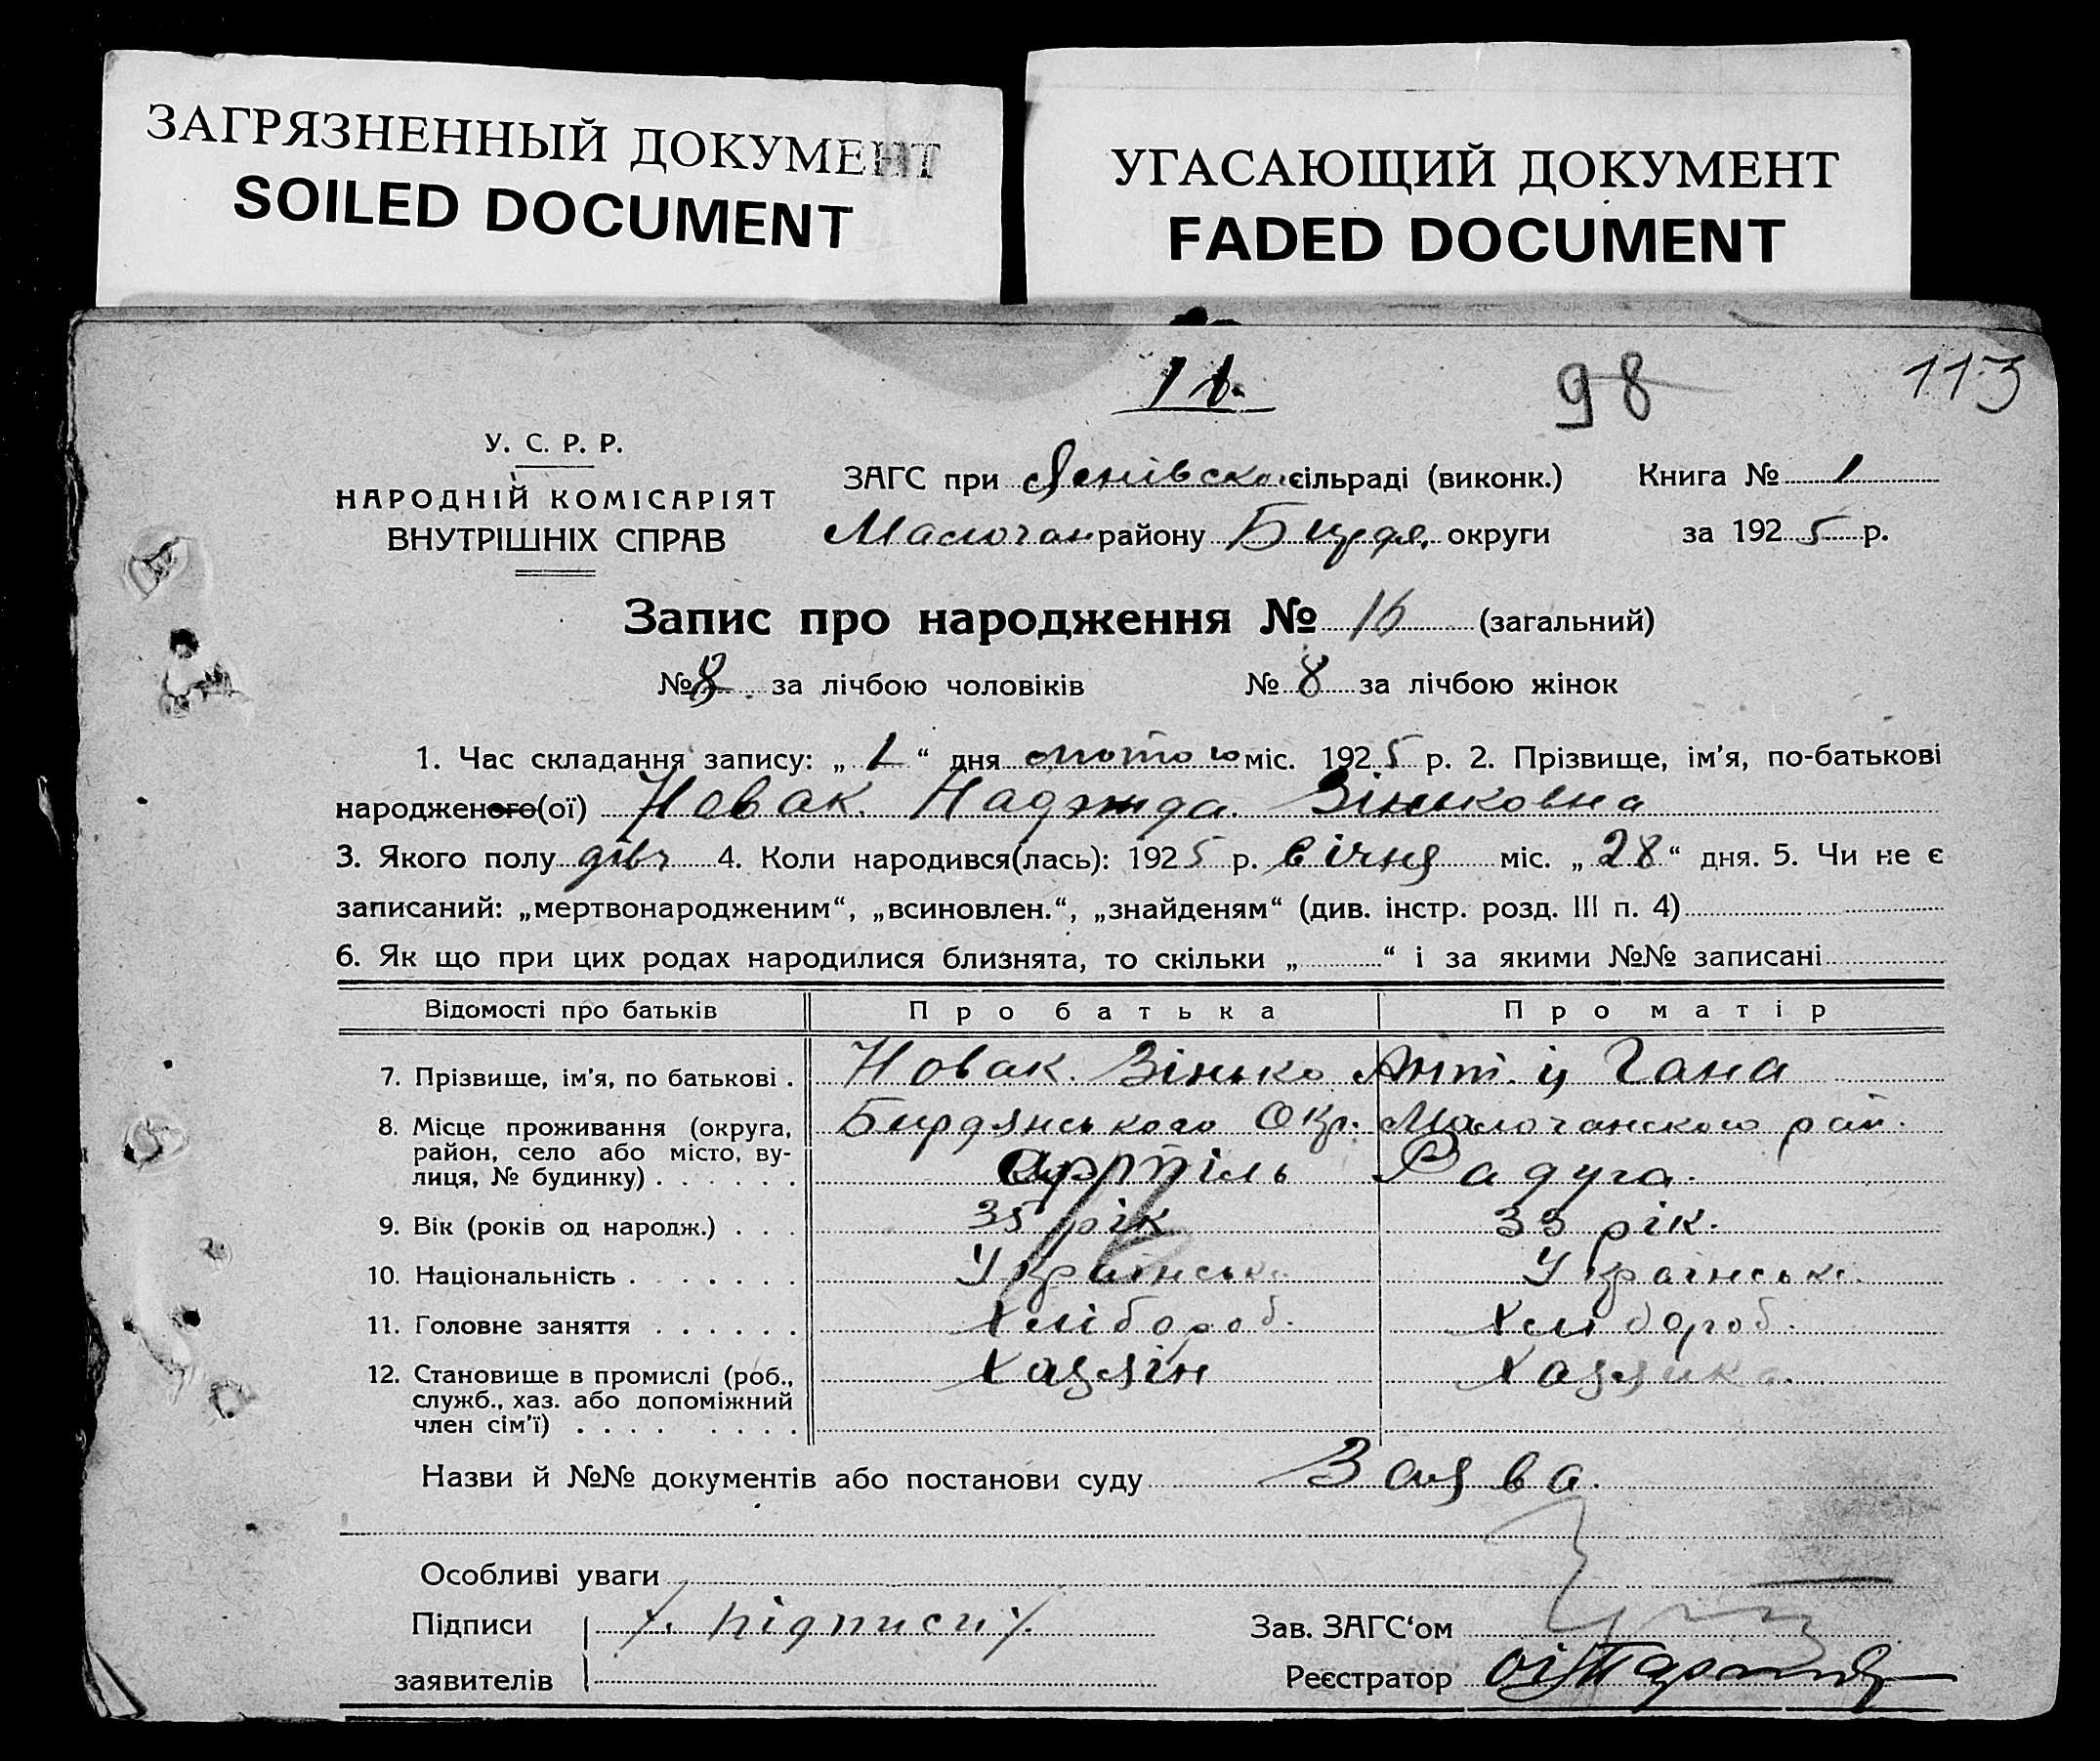 ЗАГРЯЗНЕННЫЙ ДОКУМЕНТ
SOILED DOCUMENT
УГАСАЮЩИЙ ДОКУМЕНТ
FADED DOCUMENT
98 113
У. С. Р. Р.
НАРОДНІЙ КОМІСАРІЯТ
ВНУТРІШНІХ СПРАВ
ЗАГС при сільраді (виконк.) Книга № 1
Малочан району Бирдя. округи за 1925 р.
Запис про народження № 16 (загальний)
№ за лічбою чоловіків № 8 за лічбою жінок
1. Час складання запису: „1“ дня лютого міс. 1925 р. 2. Прізвище, ім'я, по-батькові
народженого(ої) Новак. Наджда. Зіньковна
3. Якого полу дівч 4. Коли народився(лась): 1925 р. січня міс. „28“ дня. 5. Чи не є
записаний: „мертвонародженим“, „всиновлен.“, „знайденям“ (див. інстр. розд. III п. 4)
6. Як що при цих родах народилися близнята, то скільки „ “ і за якими №№ записані
Відомості про батьків Про батька Про матір
7. Прізвище, ім'я, по батькові . Новак. Зінько Ант. и Гана
8. Місце проживання (округа, Бирдянського Окр. Малочанского рай.
район, село або місто, ву-
лиця, № будинку) . . . . . . артіль Радуга.
9. Вік (років од народж.) . . . 35 рік 33 рік.
10. Національність . . . . . . . Українська Українськ.
11. Головне заняття . . . . . . Хлібороб. Хлібороб.
12. Становище в промислі (роб., Хазяін Хазяика.
служб., хаз. або допоміжний
член сім'ї) . . . . . . . .
Назви й №№ документів або постанови суду Заява.
Особливі уваги
Підписи /. підписи /.
заявителів
Зав. ЗАГС'ом
Реєстратор